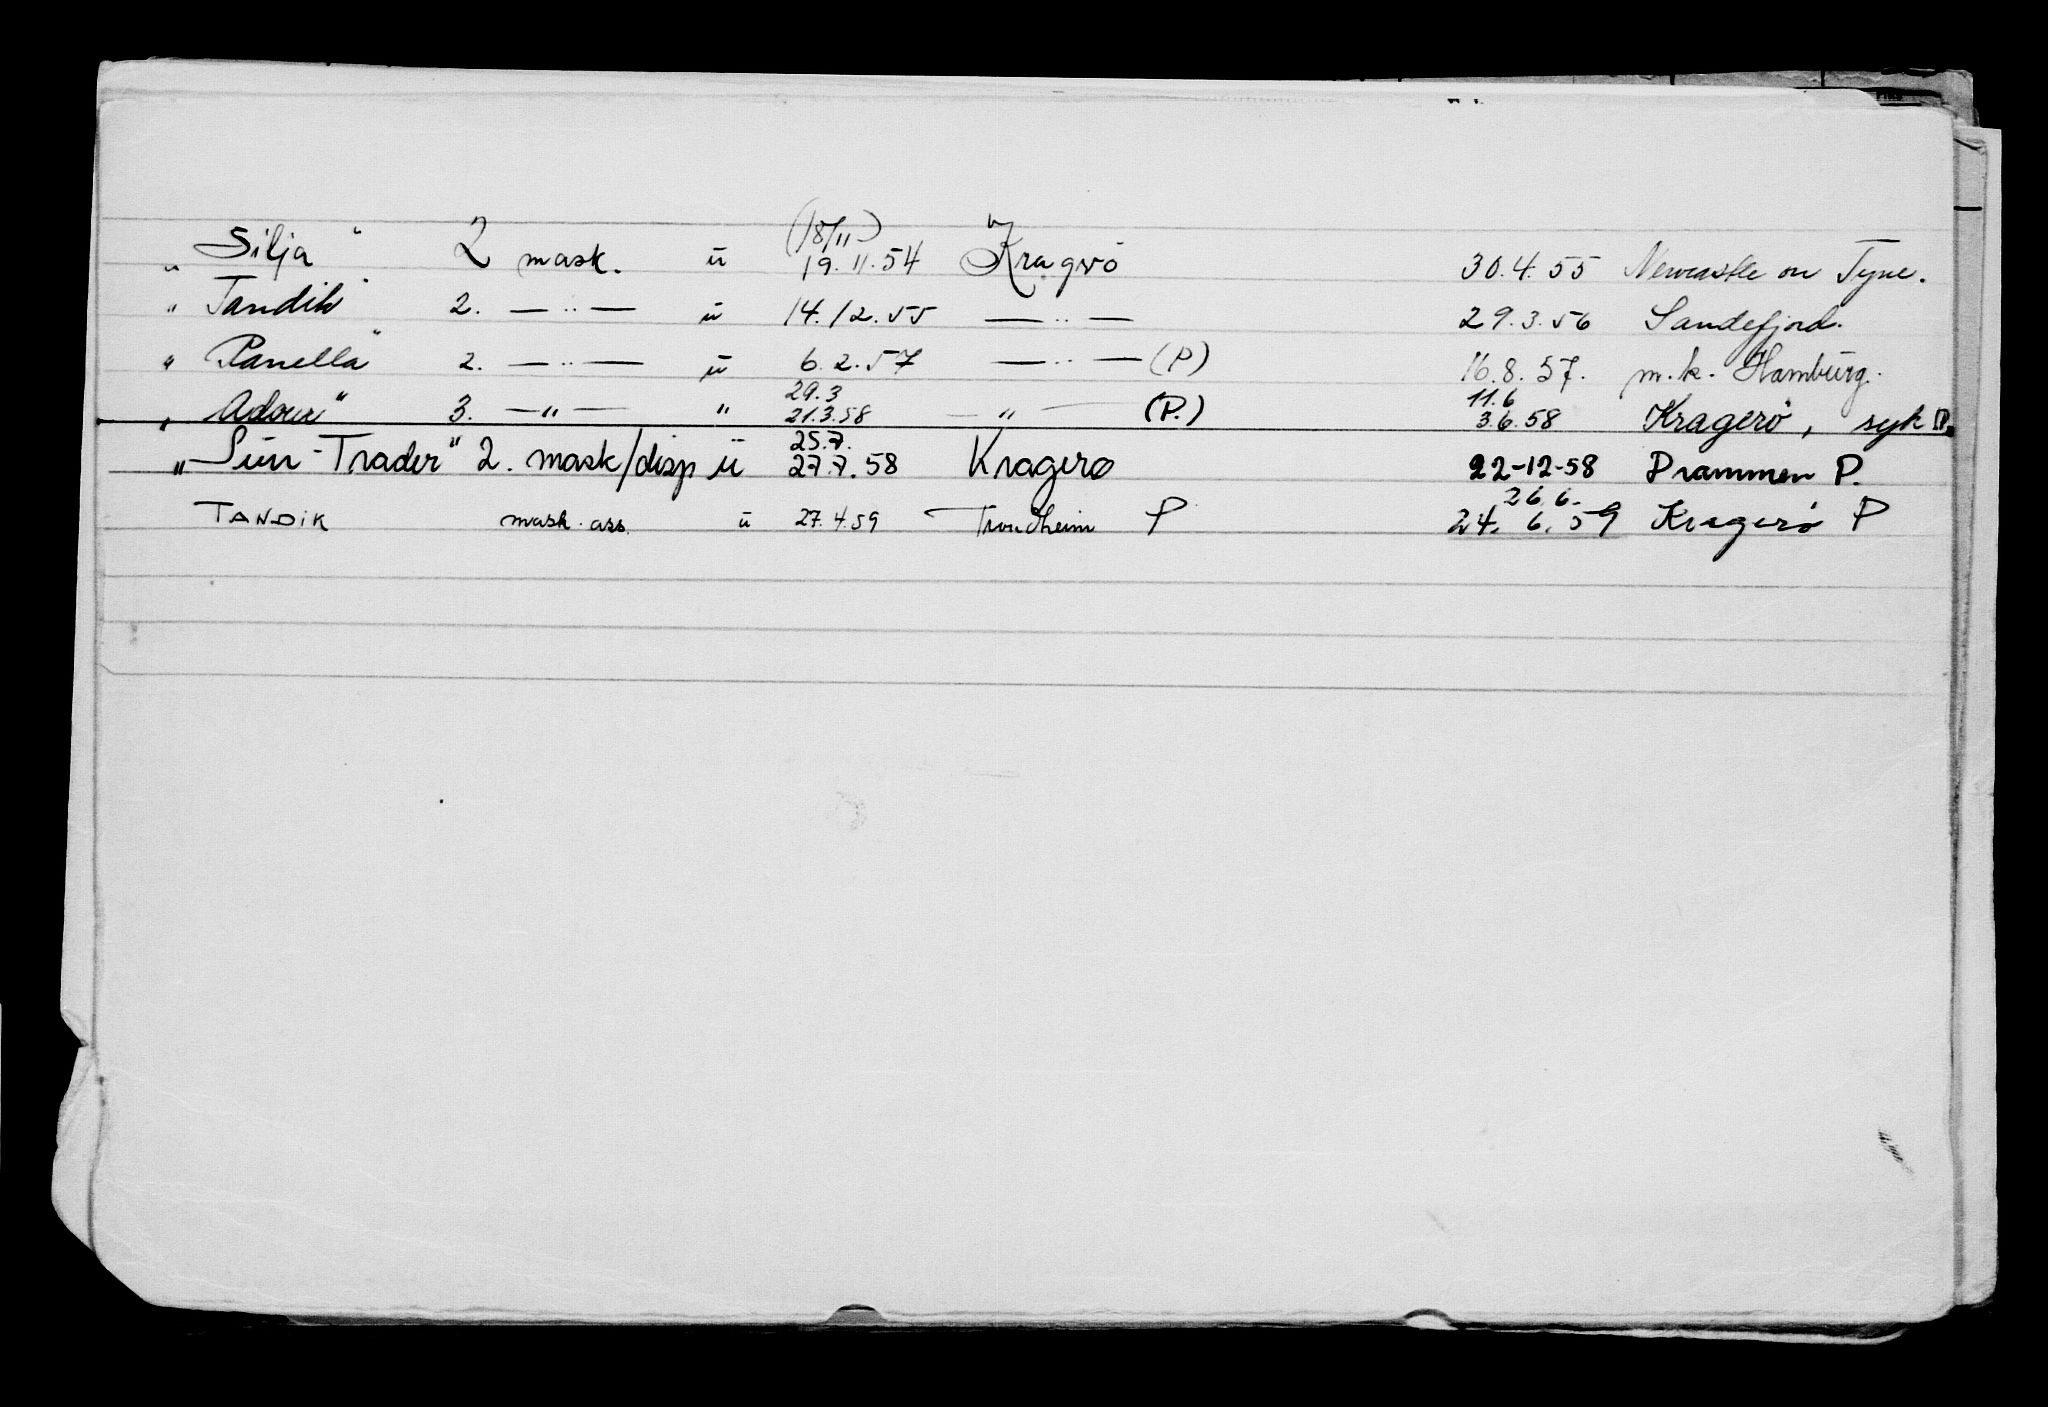 (18/11)
„ Silja " 2 mask. ü 19.11.54 Kragrø 30.4.55 Newcastle on Tyne.
" Tandik " 2. — " — ü 14.12.55 — " — 29.3.56 Sandefjord.
" Panella " 2. — " — ü 6.2.57 — " — (P) 16.8.57. m.k. Hamburg.
29.3 11.6
„ Adour " 3. — " — " 21.3.58 — " — (P.) 3.6.58 Kragerø, syk P.
25.7.
„ Sun-Trader " 2. mask/disp ü 27.7.58 Kragerø 22-12-58 Drammen P.
26.6.
TANDIK mask. ass. ü 27.4.59 Trondheim P 24.6.59 Kragerø P